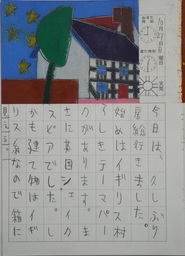 今日は、久しぶり
行きました。
始めはイギリス村
らしきテーマパー
クがあります。ま
さに英国シェイク
スピアでした。し
かも建て物はイギ
リス系なので に
見える。